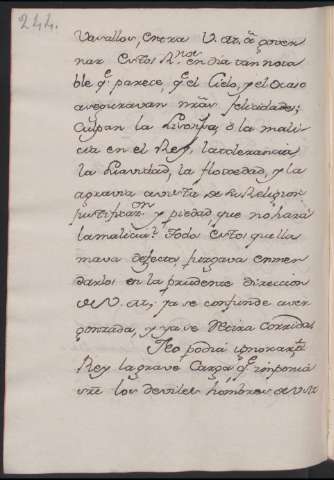 244.
Vasallos, entra V. M. à governar
nar estos R.nos en dia tan nota
ble q.e parece, q.e el Cielo, y el Ocaso
aseguravan nrãs felicidades;
Culpan la Lisonja, ò la mali
cia en el Rey, la tolerancia
la Piavidad, la flocedad, y la
agravia a vista de su Religion
justificaz.on y piedad que no hará
la malicia? Todo esto que lla
mava defecto, juzgava enmen
darlos en la prudente direccion
de V. M.; ya se confunde aver
gonzada, y ya se retira corrida.
No podia ignorar el
Rey la grave Carga q.e imponia
sre los deviles hombros de V. M.